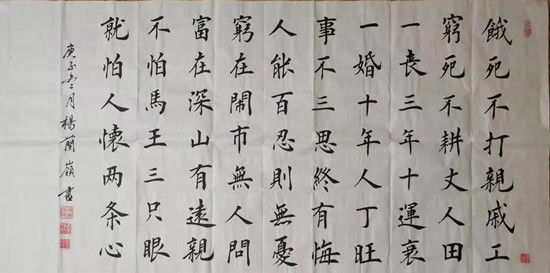 餓死不打親戚工
窮死不耕丈人田
一喪三年十運衰
一婚十年人丁旺
事不三思終有悔
人能百忍則無憂
窮在鬧市無人問
富在深山有遠親
不怕馬王三只眼
就怕人懷两条心
庚子冬月楊嶺書